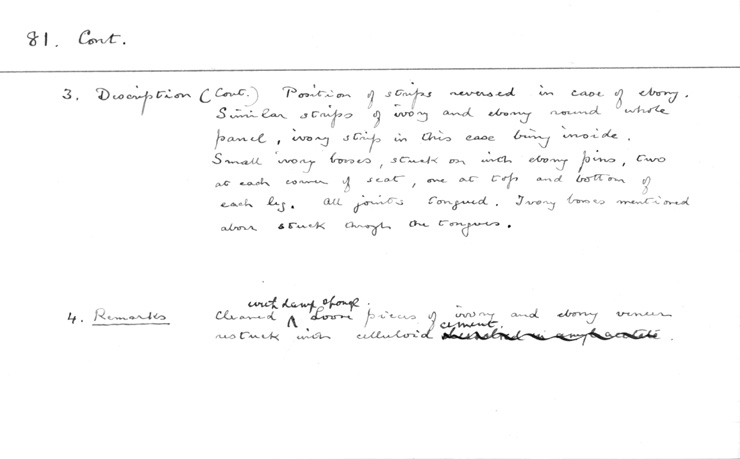 81. Cont.
3. Description (Cont.) Position of strips reversed in case of ebony.
Similar strips of ivory and ebony round whole
panel, ivory strip in this case being inside.
Small ivory bosses, stuck on with ebony pins, two
at each corner of seat, one at top and bottom of
each leg. All joints tongued. Ivory bosses mentioned
above stuck through the tongues.
with damp sponge.
4. Remarks Cleaned ^ Loose pieces of ivory and ebony veneer
cement.
restuck with celluloid dissolved in amyl acetate.